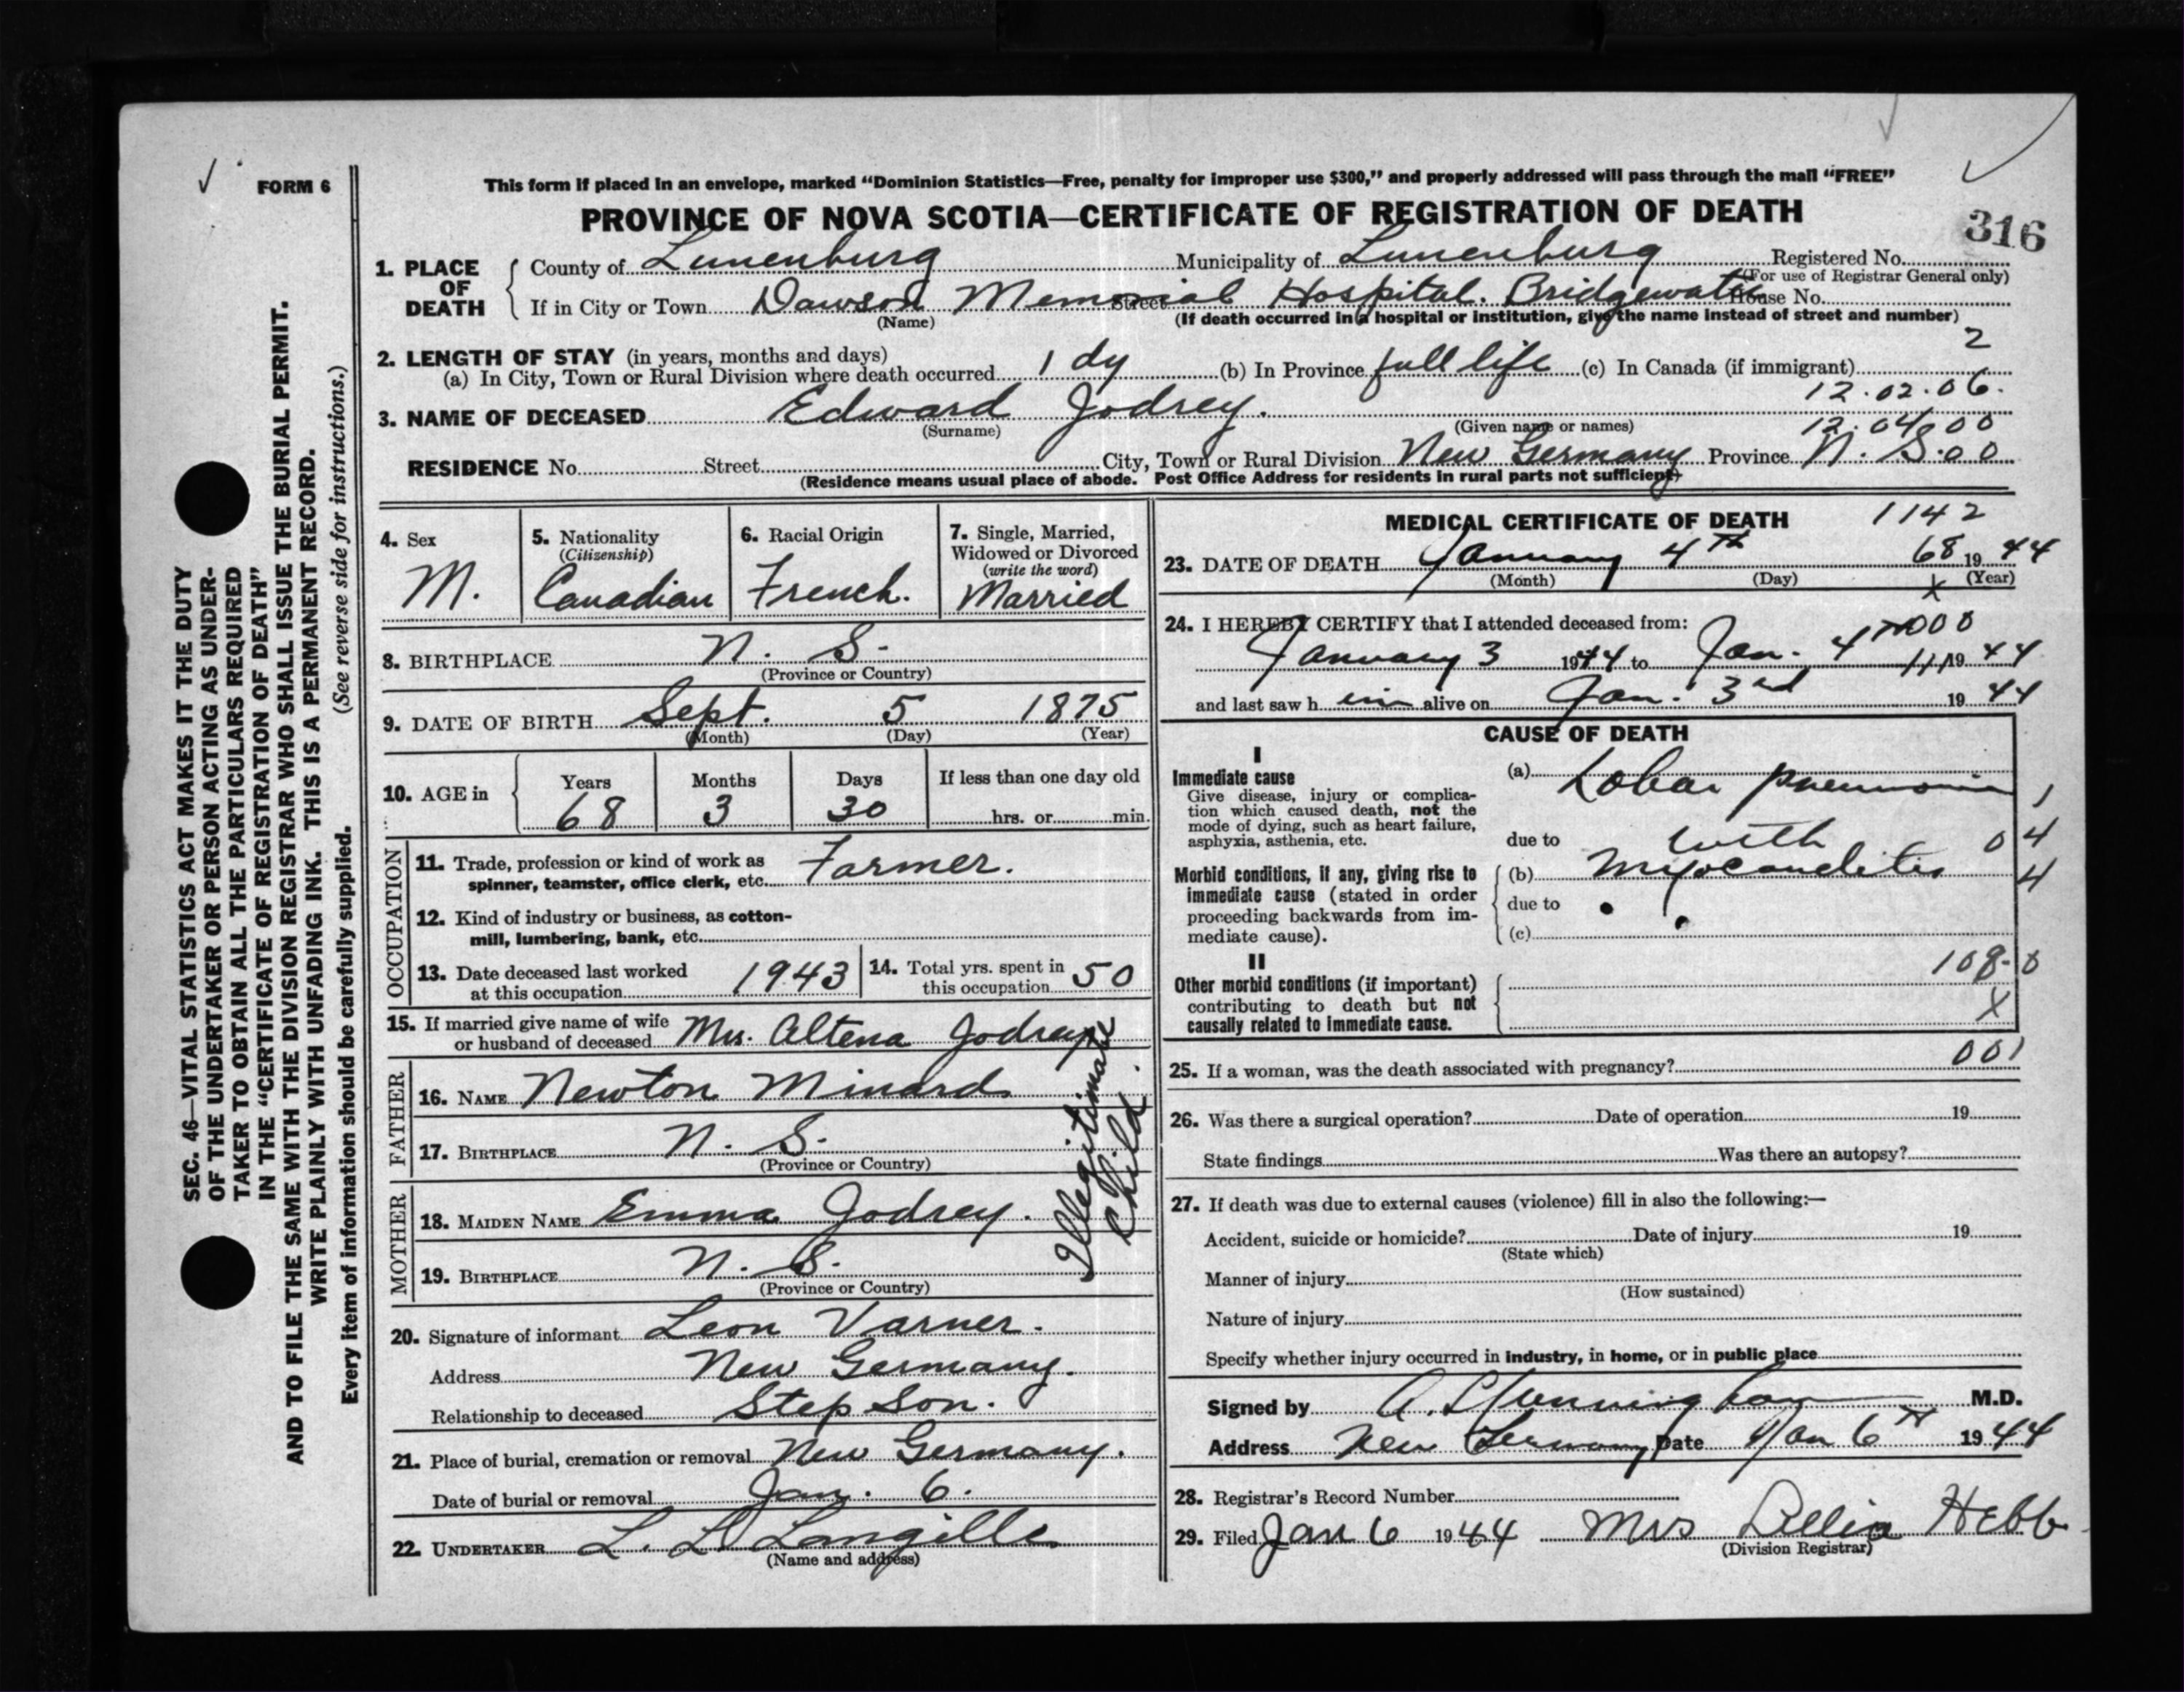 FORM 6
This form if placed in an envelope, marked “Dominion Statistics—Free, penalty for improper use $300,” and properly addressed will pass through the mail “FREE”
PROVINCE OF NOVA SCOTIA—CERTIFICATE OF REGISTRATION OF DEATH
316
1. PLACE OF DEATH
County of Lunenburg Municipality of Lunenburg Registered No.
(For use of Registrar General only)
If in City or Town Dawson Memorial Hospital. Bridgewater Street House No.
(Name) (If death occurred in a hospital or institution, give the name instead of street and number)
2
2. LENGTH OF STAY (in years, months and days)
(a) In City, Town or Rural Division where death occurred 1 dy (b) In Province full life (c) In Canada (if immigrant)
12.02.06.
3. NAME OF DECEASED Edward Jodrey.
(Surname) (Given name or names) 12.04.00
RESIDENCE No. Street City, Town or Rural Division New Germany Province N. S. 00
(Residence means usual place of abode. Post Office Address for residents in rural parts not sufficient)
4. Sex
M.
5. Nationality
(Citizenship)
Canadian
6. Racial Origin
French.
7. Single, Married,
Widowed or Divorced
(write the word)
Married
8. BIRTHPLACE N. S.
(Province or Country)
9. DATE OF BIRTH Sept. 5 1875
(Month) (Day) (Year)
10. AGE in
Years Months Days If less than one day old
68 3 30 hrs. or min.
OCCUPATION
11. Trade, profession or kind of work as
spinner, teamster, office clerk, etc. Farmer.
12. Kind of industry or business, as cotton-
mill, lumbering, bank, etc.
13. Date deceased last worked
at this occupation 1943
14. Total yrs. spent in
this occupation 50
15. If married give name of wife
or husband of deceased Mrs. Altena Jodrey
FATHER
16. NAME Newton Minard
17. BIRTHPLACE N. S.
(Province or Country)
MOTHER
18. MAIDEN NAME Emma Jodrey.
19. BIRTHPLACE N. S.
(Province or Country)
Illegitimate
Child.
20. Signature of informant Leon Varner.
Address New Germany.
Relationship to deceased Step Son.
21. Place of burial, cremation or removal New Germany.
Date of burial or removal Jan. 6.
22. UNDERTAKER L. L. Langille
(Name and address)
MEDICAL CERTIFICATE OF DEATH 1142
23. DATE OF DEATH January 4th 68 1944
(Month) (Day) x (Year)
24. I HEREBY CERTIFY that I attended deceased from: 000
January 3 1944 to Jan. 4th 111 1944
and last saw him alive on Jan. 3rd 1944
CAUSE OF DEATH
I
Immediate cause
Give disease, injury or complica-
tion which caused death, not the
mode of dying, such as heart failure,
asphyxia, asthenia, etc.
(a) Lobar pneumonia 1
due to with 04
Morbid conditions, if any, giving rise to
immediate cause (stated in order
proceeding backwards from im-
mediate cause).
(b) Myocarditis 4
due to
(c)
108-0
II
Other morbid conditions (if important)
contributing to death but not
causally related to immediate cause.
X
001
25. If a woman, was the death associated with pregnancy?
26. Was there a surgical operation? Date of operation 19
State findings Was there an autopsy?
27. If death was due to external causes (violence) fill in also the following:—
Accident, suicide or homicide? Date of injury 19
(State which)
Manner of injury
(How sustained)
Nature of injury
Specify whether injury occurred in industry, in home, or in public place
Signed by Cunningham M.D.
Address New Germany Date Jan 6th 1944
28. Registrar's Record Number
29. Filed Jan 6 1944 Mrs Lellia Hebb
(Division Registrar)
SEC. 46—VITAL STATISTICS ACT MAKES IT THE DUTY
OF THE UNDERTAKER OR PERSON ACTING AS UNDER-
TAKER TO OBTAIN ALL THE PARTICULARS REQUIRED
IN THE “CERTIFICATE OF REGISTRATION OF DEATH”
AND TO FILE THE SAME WITH THE DIVISION REGISTRAR WHO SHALL ISSUE THE BURIAL PERMIT.
WRITE PLAINLY WITH UNFADING INK. THIS IS A PERMANENT RECORD.
Every item of information should be carefully supplied. (See reverse side for instructions.)